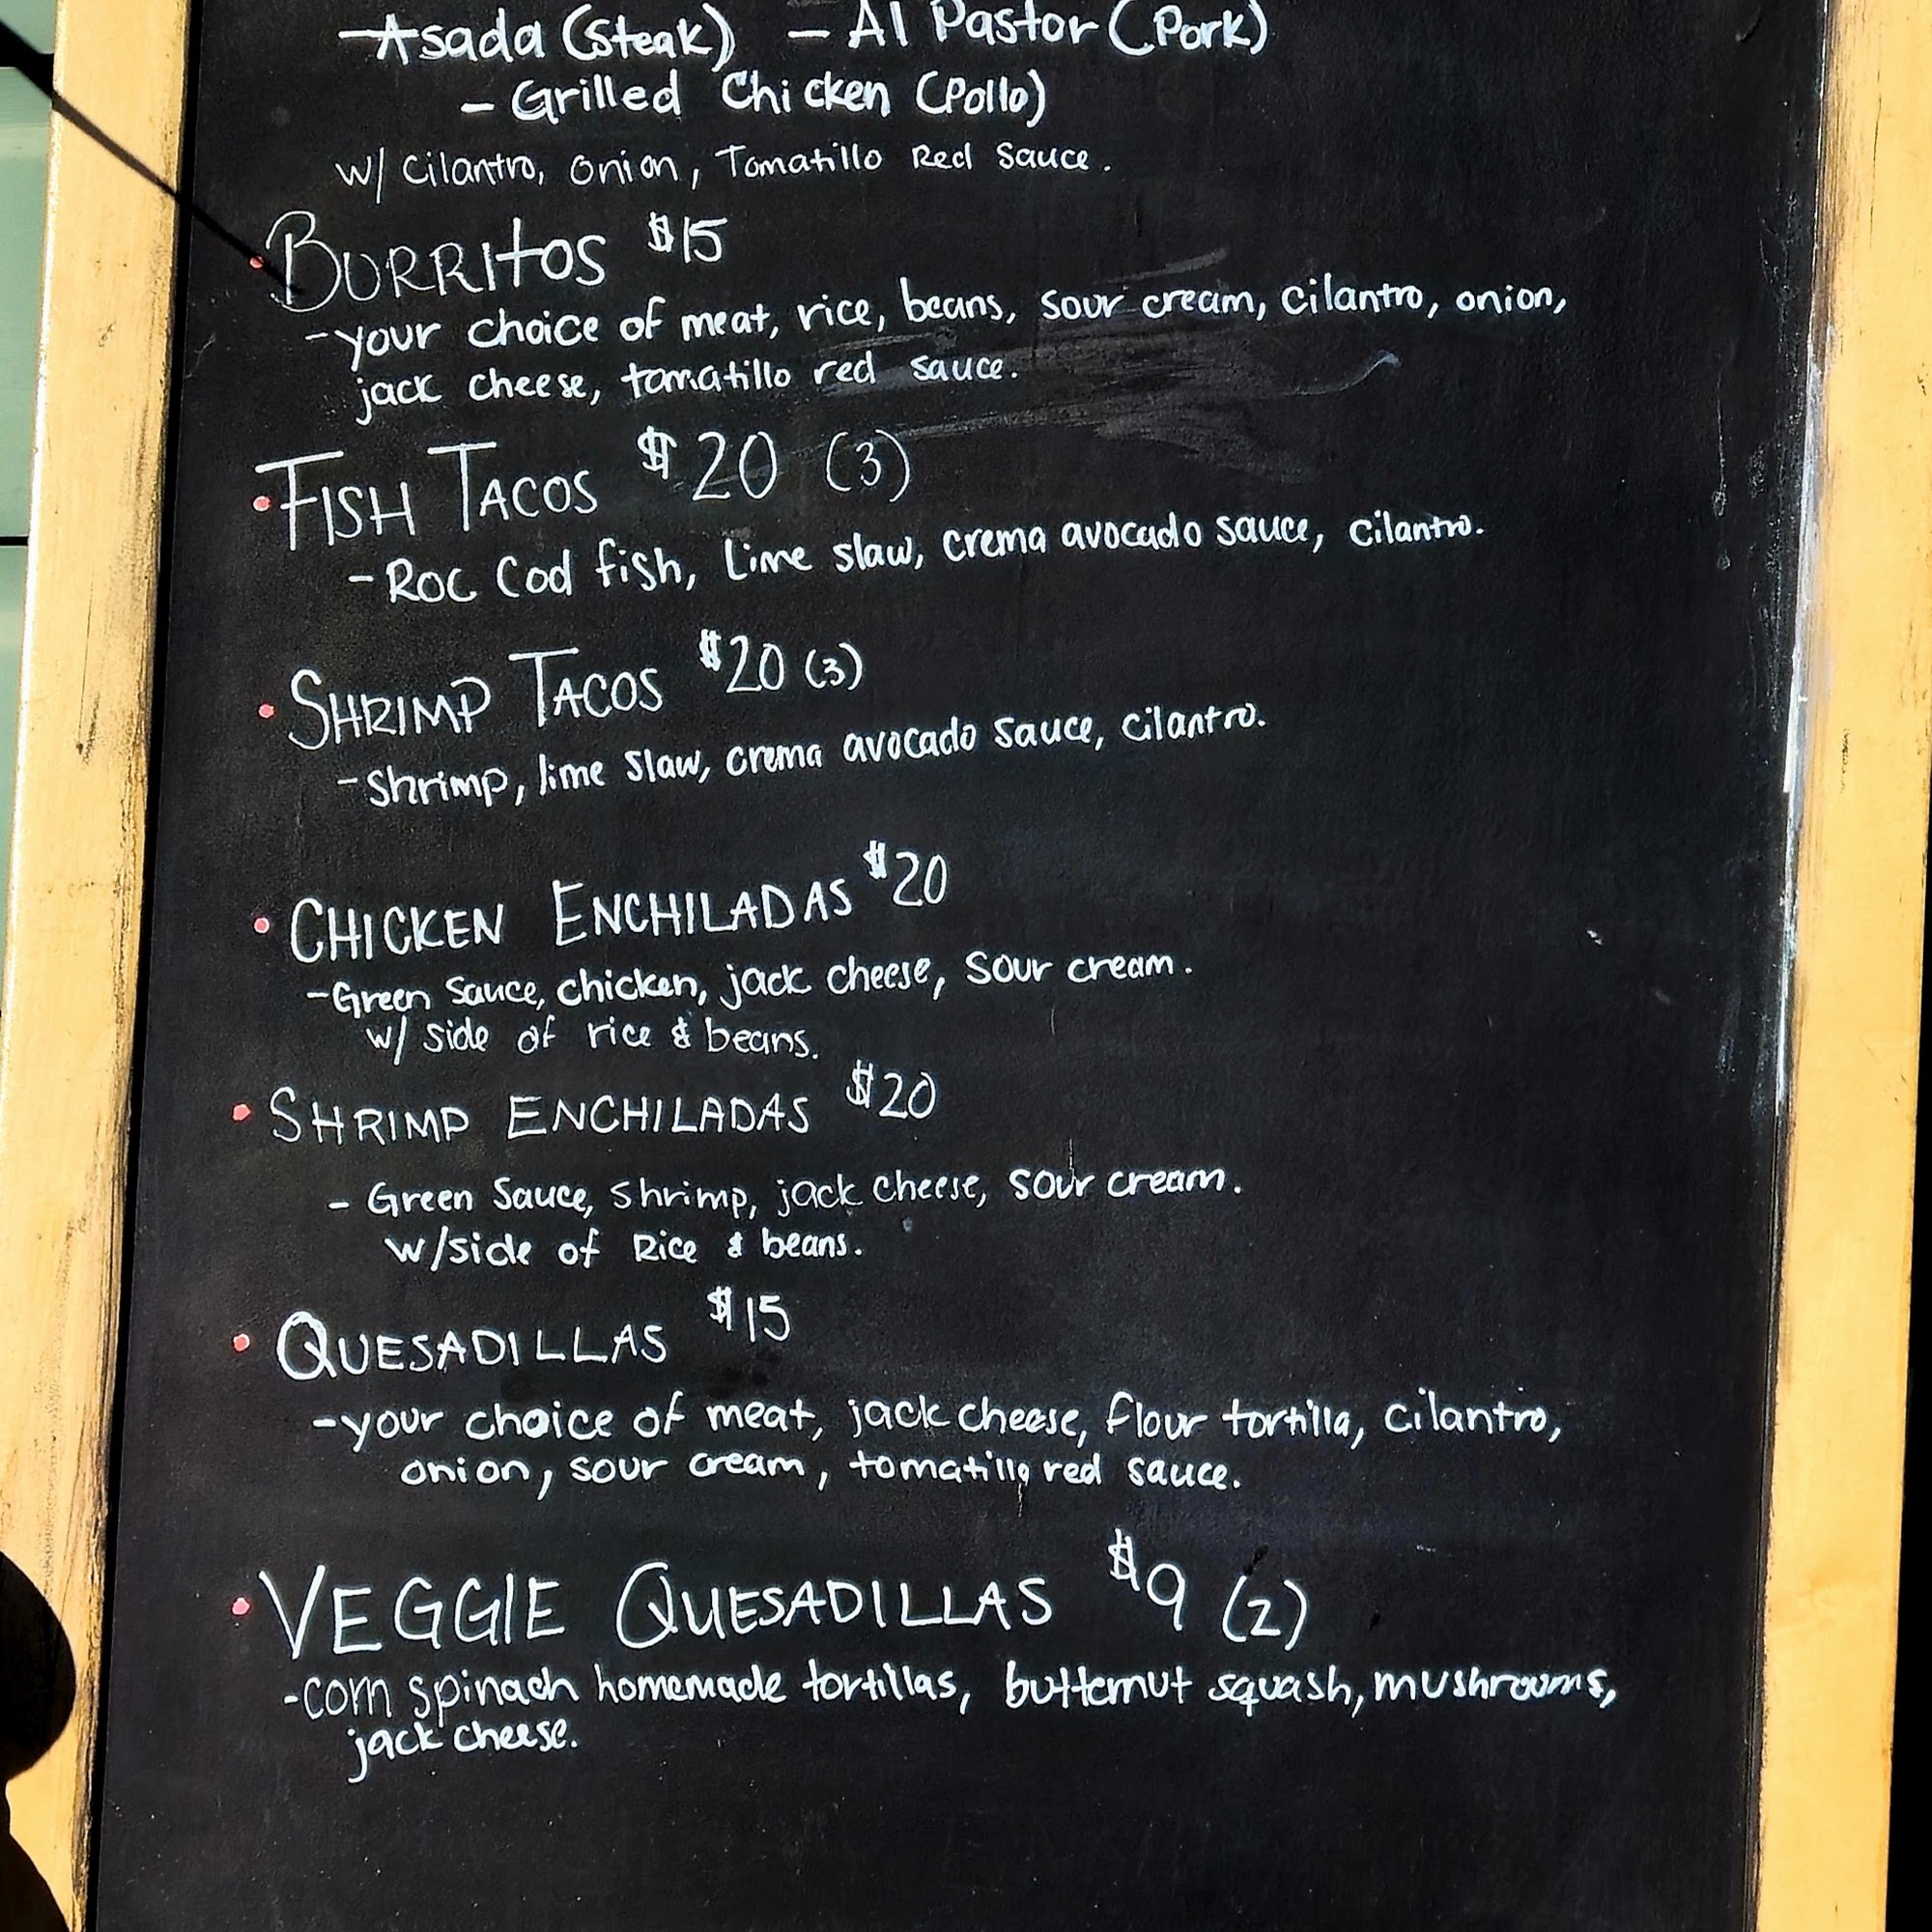 -Asada (Steak) - Al Pastor (Pork)
- Grilled Chicken (Pollo)
w/ Cilantro, Onion, Tomatillo Red Sauce.
• BURRITOS $15
-your choice of meat, rice, beans, sour cream, cilantro, onion,
jack cheese, tomatillo red sauce.
• FISH TACOS $20 (3)
- Roc Cod fish, Lime slaw, crema avocado sauce, cilantro.
• SHRIMP TACOS $20 (3)
-Shrimp, lime Slaw, crema avocado sauce, cilantro.
• CHICKEN ENCHILADAS $20
-Green Sauce, chicken, jack cheese, sour cream.
w/ side of rice & beans.
• SHRIMP ENCHILADAS $20
- Green Sauce, shrimp, jack cheese, sour cream.
w/side of Rice & beans.
• QUESADILLAS $15
-your choice of meat, jack cheese, flour tortilla, cilantro,
onion, sour cream, tomatillo red sauce.
• VEGGIE QUESADILLAS $9 (2)
-corn spinach homemade tortillas, butternut squash, mushrooms,
jack cheese.